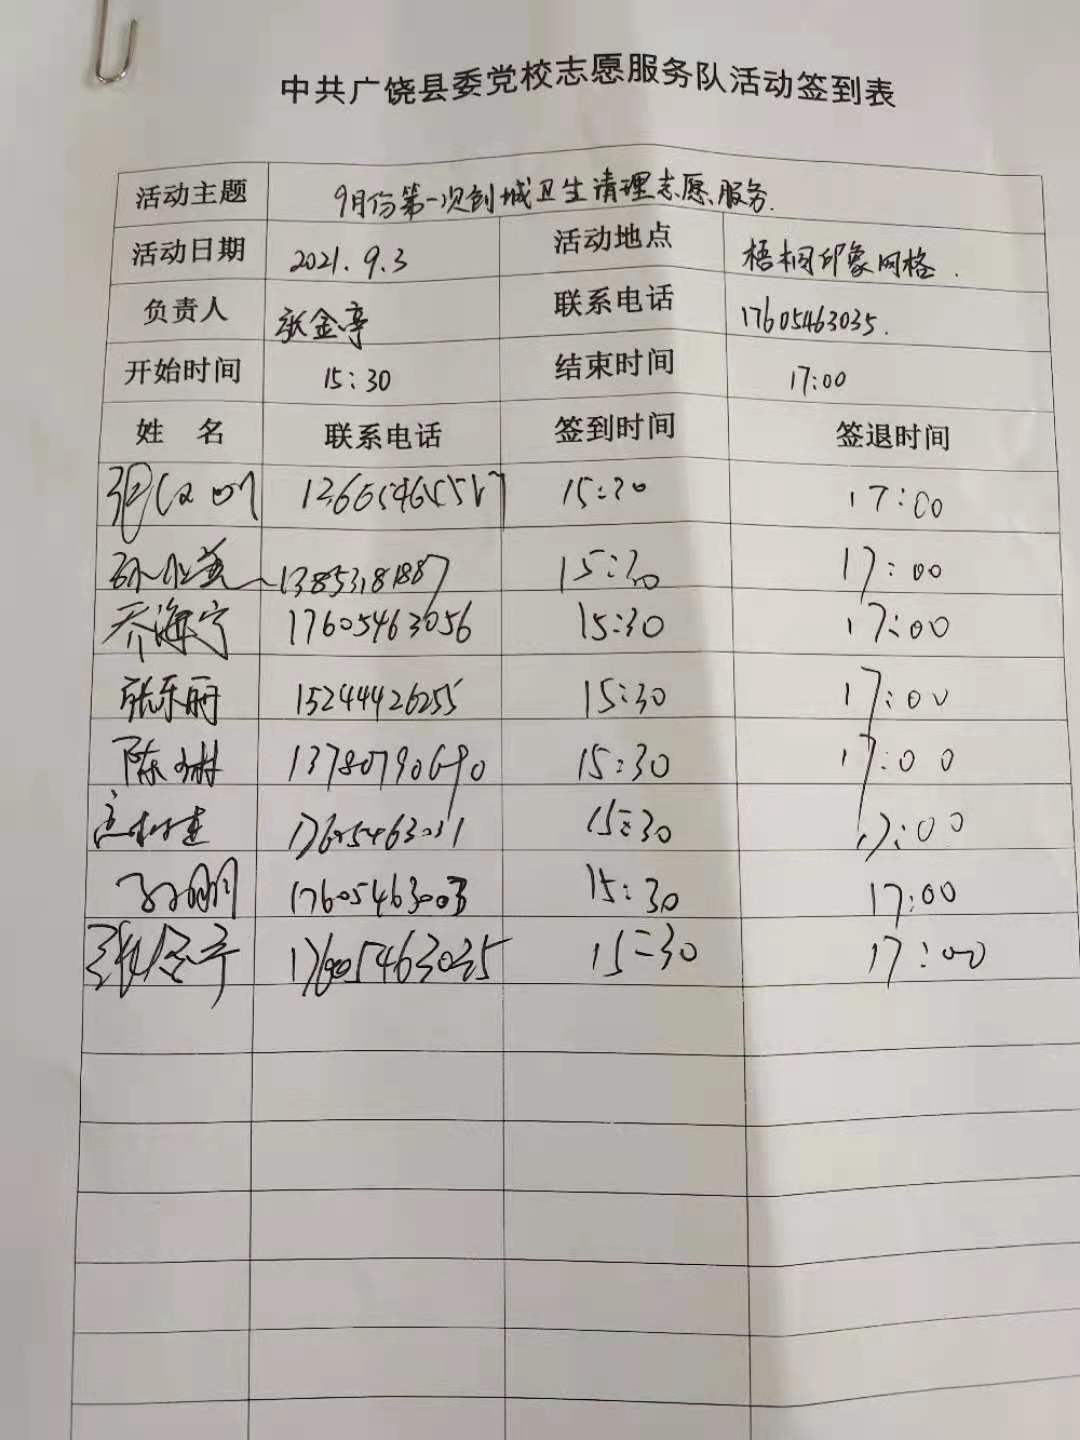 中共广饶县委党校志愿服务队活动签到表
活动主题 9月份第一次创城卫生清理志愿服务.
活动日期 2021.9.3 活动地点 梧桐印象网格.
负责人 张金亭 联系电话 17605463035.
开始时间 15:30 结束时间 17:00
姓 名 联系电话 签到时间 签退时间
15:30 17:00
13853181887 15:30 17:00
乔海宁 17605463056 15:30 17:00
张乐丽 15244426255 15:30 17:00
陈琳 13780790690 15:30 17:00
17605463031 15:30 17:00
孙朋 17605463003 15:30 17:00
张金亭 17605463035 15:30 17:00